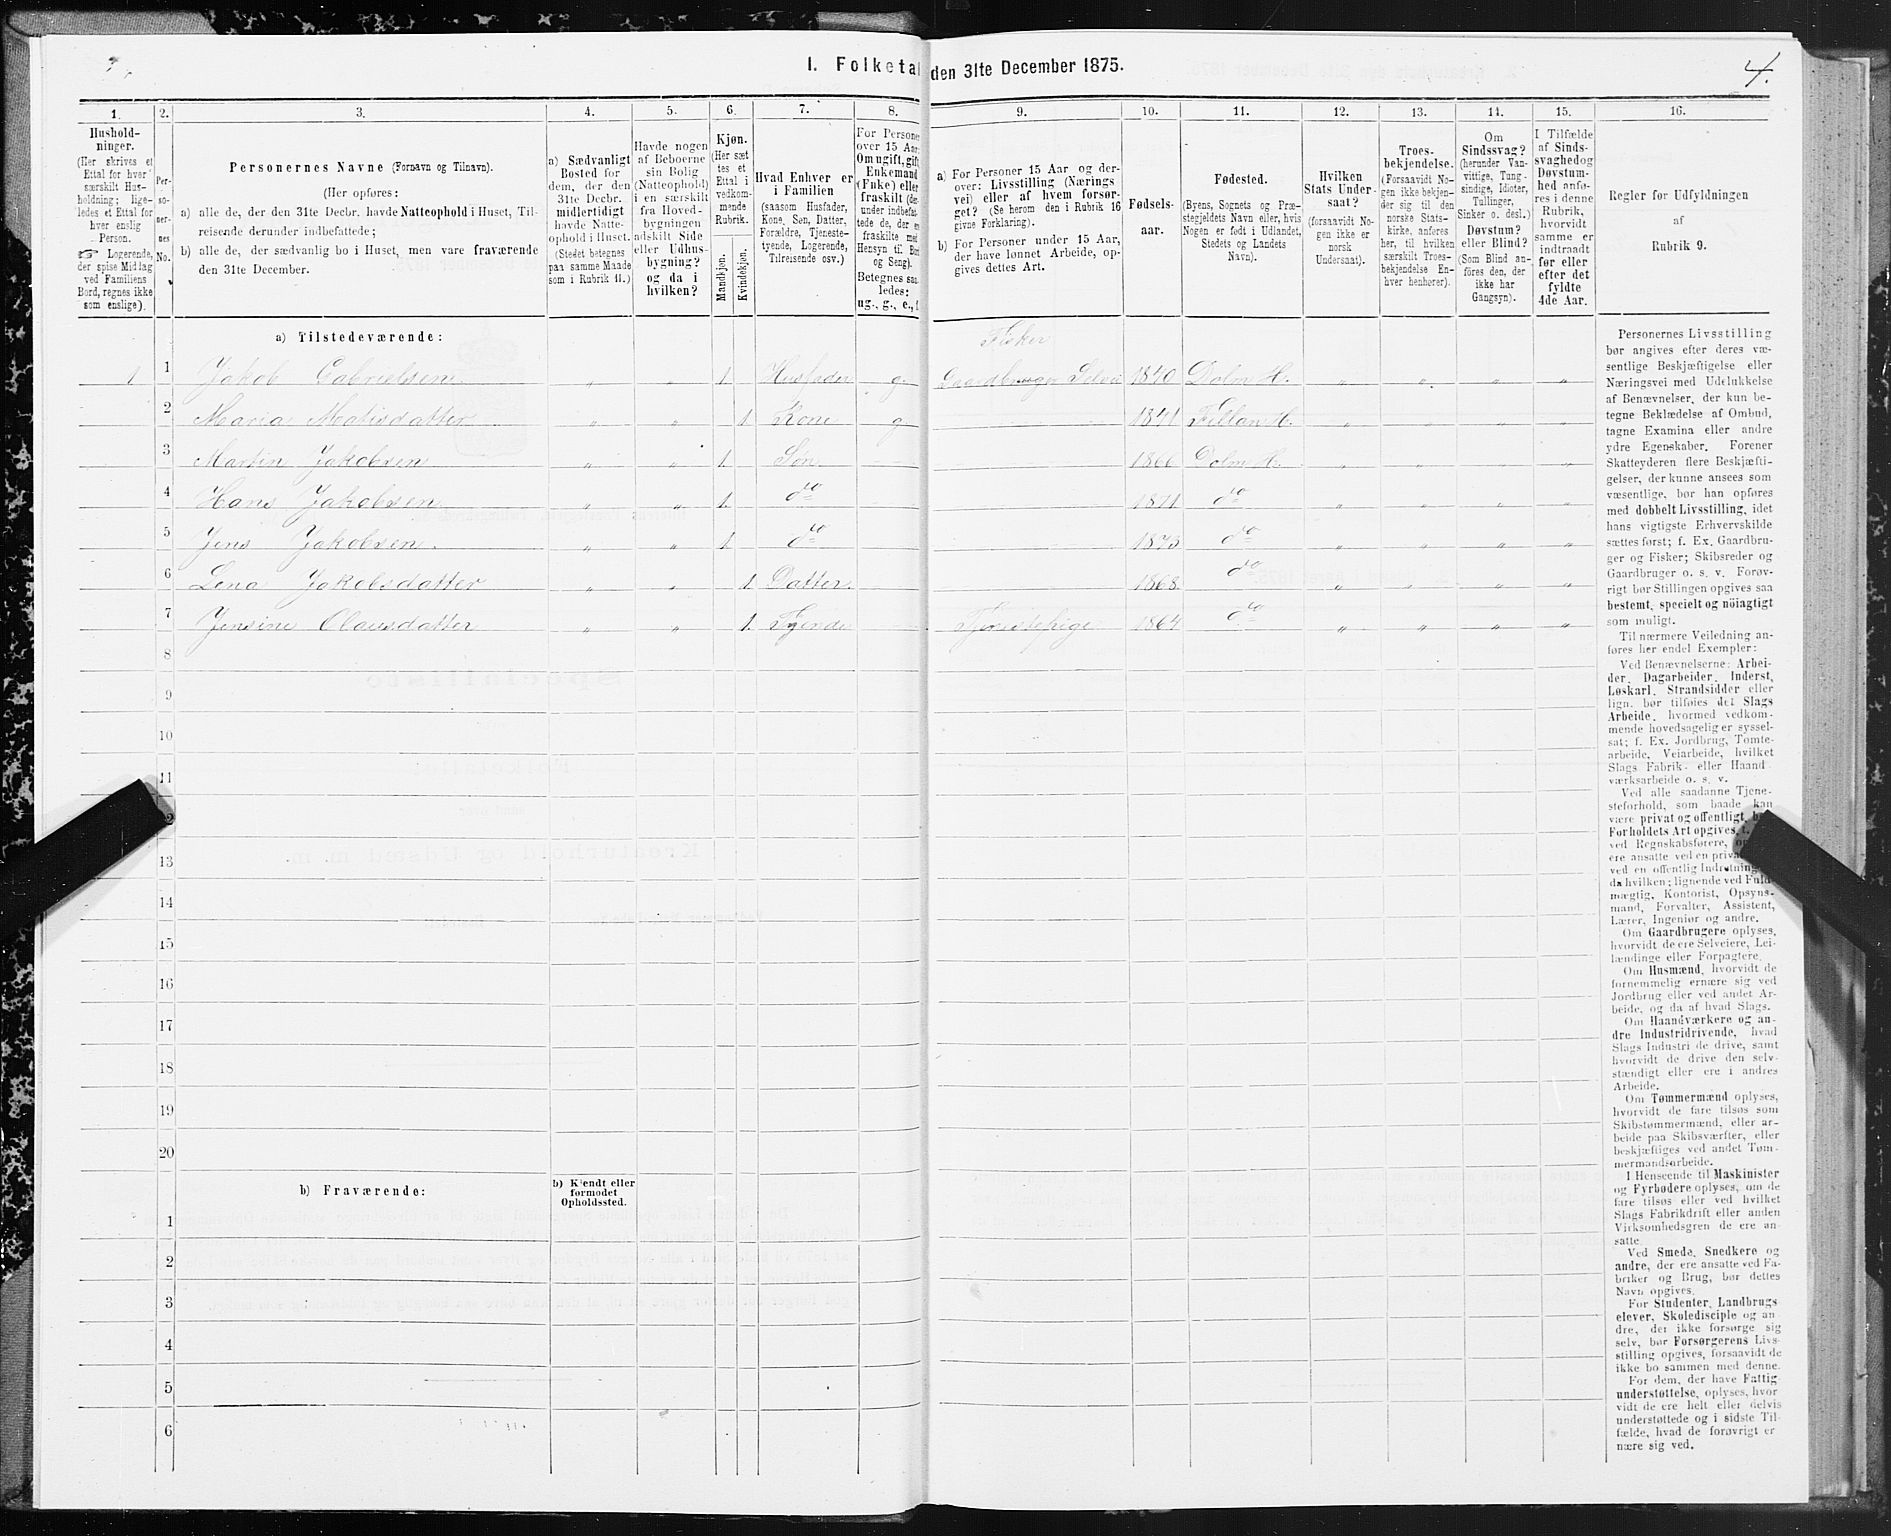 I. Folketal den 31te December 1875.
4.
1. 2. 3. 4. 5. 6. 7. 8. 9. 10. 11. 12. 13. 14. 15. 16.
Hushold-
ninger.
(Her skrives et
Ettal for hver
særskilt Hus-
holdning; lige-
ledes et Ettal for
hver enslig
Person.
☞ Logerende,
der spise Middag
ved Familiens
Bord, regnes ikke
som enslige).
Per-
so-
ner-
nes
No.
Personernes Navne (Fornavn og Tilnavn).
(Her opføres:
a) alle de, der den 31te Decbr. havde Natteophold i Huset, Til-
reisende derunder indbefattede;
b) alle de, der sædvanlig bo i Huset, men vare fraværende
den 31te December.
a) Sædvanligt
Bosted for
dem, der den
31te Decbr.
midlertidigt
havde Natte-
ophold i Huset.
(Stedet betegnes
paa samme Maade
som i Rubrik 11.)
Havde nogen
af Beboerne
sin Bolig
(Natteophold)
i en særskilt
fra Hoved-
bygningen
adskilt Side
eller Udhus-
bygning?
og da i
hvilken?
Kjøn.
(Her sæt
tes et
Ettal i
vedkom-
mende
Rubrik.
Mandkjøn.
Kvindekjøn.
Hvad Enhver er
i Familien
(saasom Husfader,
Kone, Søn, Datter,
Forældre, Tjeneste-
tyende, Logerende,
Tilreisende osv.)
For Persone
over 15 Aar
Om ugift, gift
Enkemand
(Enke) eller
fraskilt (der
under indbefat
tede de, der er
fraskilte med
Hensyn til Bor
og Seng).
Betegnes saa
ledes:
ug., g., e., f
a) For Personer 15 Aar og der-
over: Livsstilling (Nærings
vei) eller af hvem forsør-
get? (Se herom den i Rubrik 16
givne Forklaring).
b) For Personer under 15 Aar,
der have lønnet Arbeide, op-
gives dettes Art.
Fødsels-
aar.
Fødested.
(Byens, Sognets og Præ-
stegjeldets Navn eller, hvis
Nogen er født i Udlandet,
Stedets og Landets
Navn).
Hvilken
Stats Under-
saat?
(forsaavidt No-
gen ikke er
norsk
Undersaat).
Troes-
bekjendelse.
(Forsaavidt No-
gen ikke bekjen-
der sig til den
norske Stats-
kirke, anføres
her, til hvilken
særskilt Troes-
bekjendelse En-
hver henhører).
Om
Sindssvag?
(herunder Van-
vittige, Tung-
sindige, Idioter,
Tullinger,
Sinker o. desl.)
Døvstum?
eller Blind?
(Som Blind an-
føres den, der
ikke har
Gangsyn).
I Tilfælde
af Sinds-
svaghed og
Døvstum-
hed anfø-
res i denne
Rubrik,
hvorvidt
samme er
indtraadt
før eller
efter det
fyldte
4de Aar.
Regler for Udfyldningen
af
Rubrik 9.
a) Tilstedeværende:
Fisker
1 1 Jakob Gabrielsen " " 1. Husfader g. Gaardbruger Selvei 1840 Dolm H. " " " "
2 Maria Matisdatter " " 1. Kone g 1841 Fillan H. " " " "
3 Martin Jakobsen " " 1. Søn 1866 Dolm H. " " " "
4 Hans Jakobsen " " 1. do 1871 do " " " "
5 Jens Jakobsen. " " 1. do 1873 do " " " "
6 Lena Jakobsdatter " " 1. Datter. 1868. do " " " "
7 Jensine Olausdatter " " 1. Tjende Tjenestepige 1864 do " " " "
8
9
10
11
13
14
15
16
17
18
19
20
b) Fraværende:
b) Kjendt eller
formodet
Opholdssted.
1
2
3
4
5
6
Personernes Livsstilling
bør angives efter deres væ-
sentlige Beskjæftigelse eller
Næringsvei med Udelukkelse
af Benævnelser, der kun be-
tegne Beklædelse af Ombud,
tagne Examina eller andre
ydre Egenskaber. Forener
Skatteyderen flere Beskjæfti-
gelser, der kunne ansees som
væsentlige, bør han opføres
med dobbelt Livsstilling, idet
hans vigtigste Erhvervskilde
sættes først; f. Ex. Gaardbru-
ger og Fisker; Skibsreder og
Gaardbruger o. s. v. Forøv-
rigt bør Stillingen opgives saa
bestemt, specielt og nöiagtigt
som muligt.
Til nærmere Veiledning an-
føres her endel Exempler:
Ved Benævnelserne: Arbei-
der, Dagarbeider, Inderst,
Løskarl, Strandsidder eller
lign. bør tilføies det Slags
Arbeide, hvormed vedkom-
mende hovedsagelig er syssel-
sat; f. Ex. Jordbrug, Tomte-
arbeide, Veiarbeide, hvilket
Slags Fabrik- eller Haand
værksarbeide o. s. v.
Ved alle saadanne Tjene-
steforhold, som baade kan
være privat og offentligt,
Forholdets Art opgives,
ved Regnskabsførere,
ere ansatte ved en
ved en offentlig Indretning
da hvilken; lignende ved Fuld-
mægtig, Kontorist, Opsyns-
mand, Forvalter, Assistent,
Lærer, Ingeniør og andre.
Om Gaardbrugere oplyses,
hvorvidt de ere Selveiere, Lei-
lændinge eller Forpagtere.
Om Husmænd, hvorvidt de
fornemmelig ernære sig ved
Jordbrug eller ved andet Ar-
beide, og da af hvad Slags.
Om Haandværkere og an-
dre Industridrivende, hvad
Slags Industri de drive, samt
hvorvidt de drive den selv-
stændigt eller ere i andres
Arbeide.
Om Tømmermænd oplyses,
hvorvidt de fare tilsøs som
Skibstømmermænd, eller ar-
beide paa Skibsværfter, eller
beskjæftiges ved andet Tøm-
mermandsarbeide.
I Henseende til Maskinister
og Fyrbødere oplyses, om de
fare tilsøs eller ved hvilket
Slags Fabrikdrift eller anden
Virksomhedsgren de ere an-
satte.
Ved Smede, Snedkere og
andre, der ere ansatte ved Fa-
briker og Brug, bør dettes
Navn opgives.
For Studenter, Landbrugs
elever, Skoledisciple og an
dre, der ikke forsørge sig
selv, bør Forsørgerens Livs-
stilling opgives, forsaavidt de
ikke bo sammen med denne.
For dem, der have Fattig
understøttelse, oplyses, hvor
vidt de ere helt eller delvis
understøttede og i sidste Til-
fælde, hvad de forøvrigt er
nære sig ved.